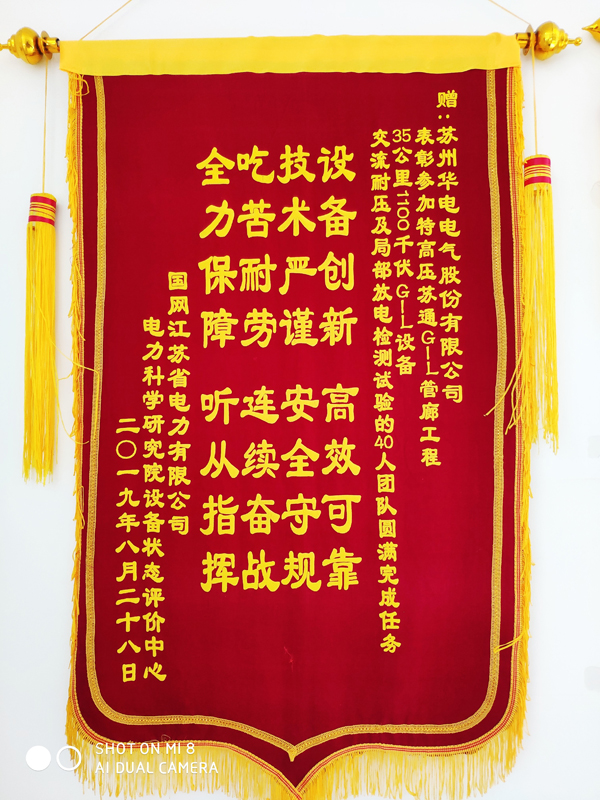 赠:苏州华电电气股份有限公司
表彰参加特高压苏通GIL管廊工程
35公里1100千伏GIL设备
交流耐压及局部放电检测试验的40人团队圆满完成任务
设备创新 高效可靠
技术严谨 安全守规
吃苦耐劳 连续奋战
全力保障 听从指挥
国网江苏省电力有限公司
电力科学研究院设备状态评价中心
二〇一九年八月二十八日
SHOT ON MI 8
AI DUAL CAMERA